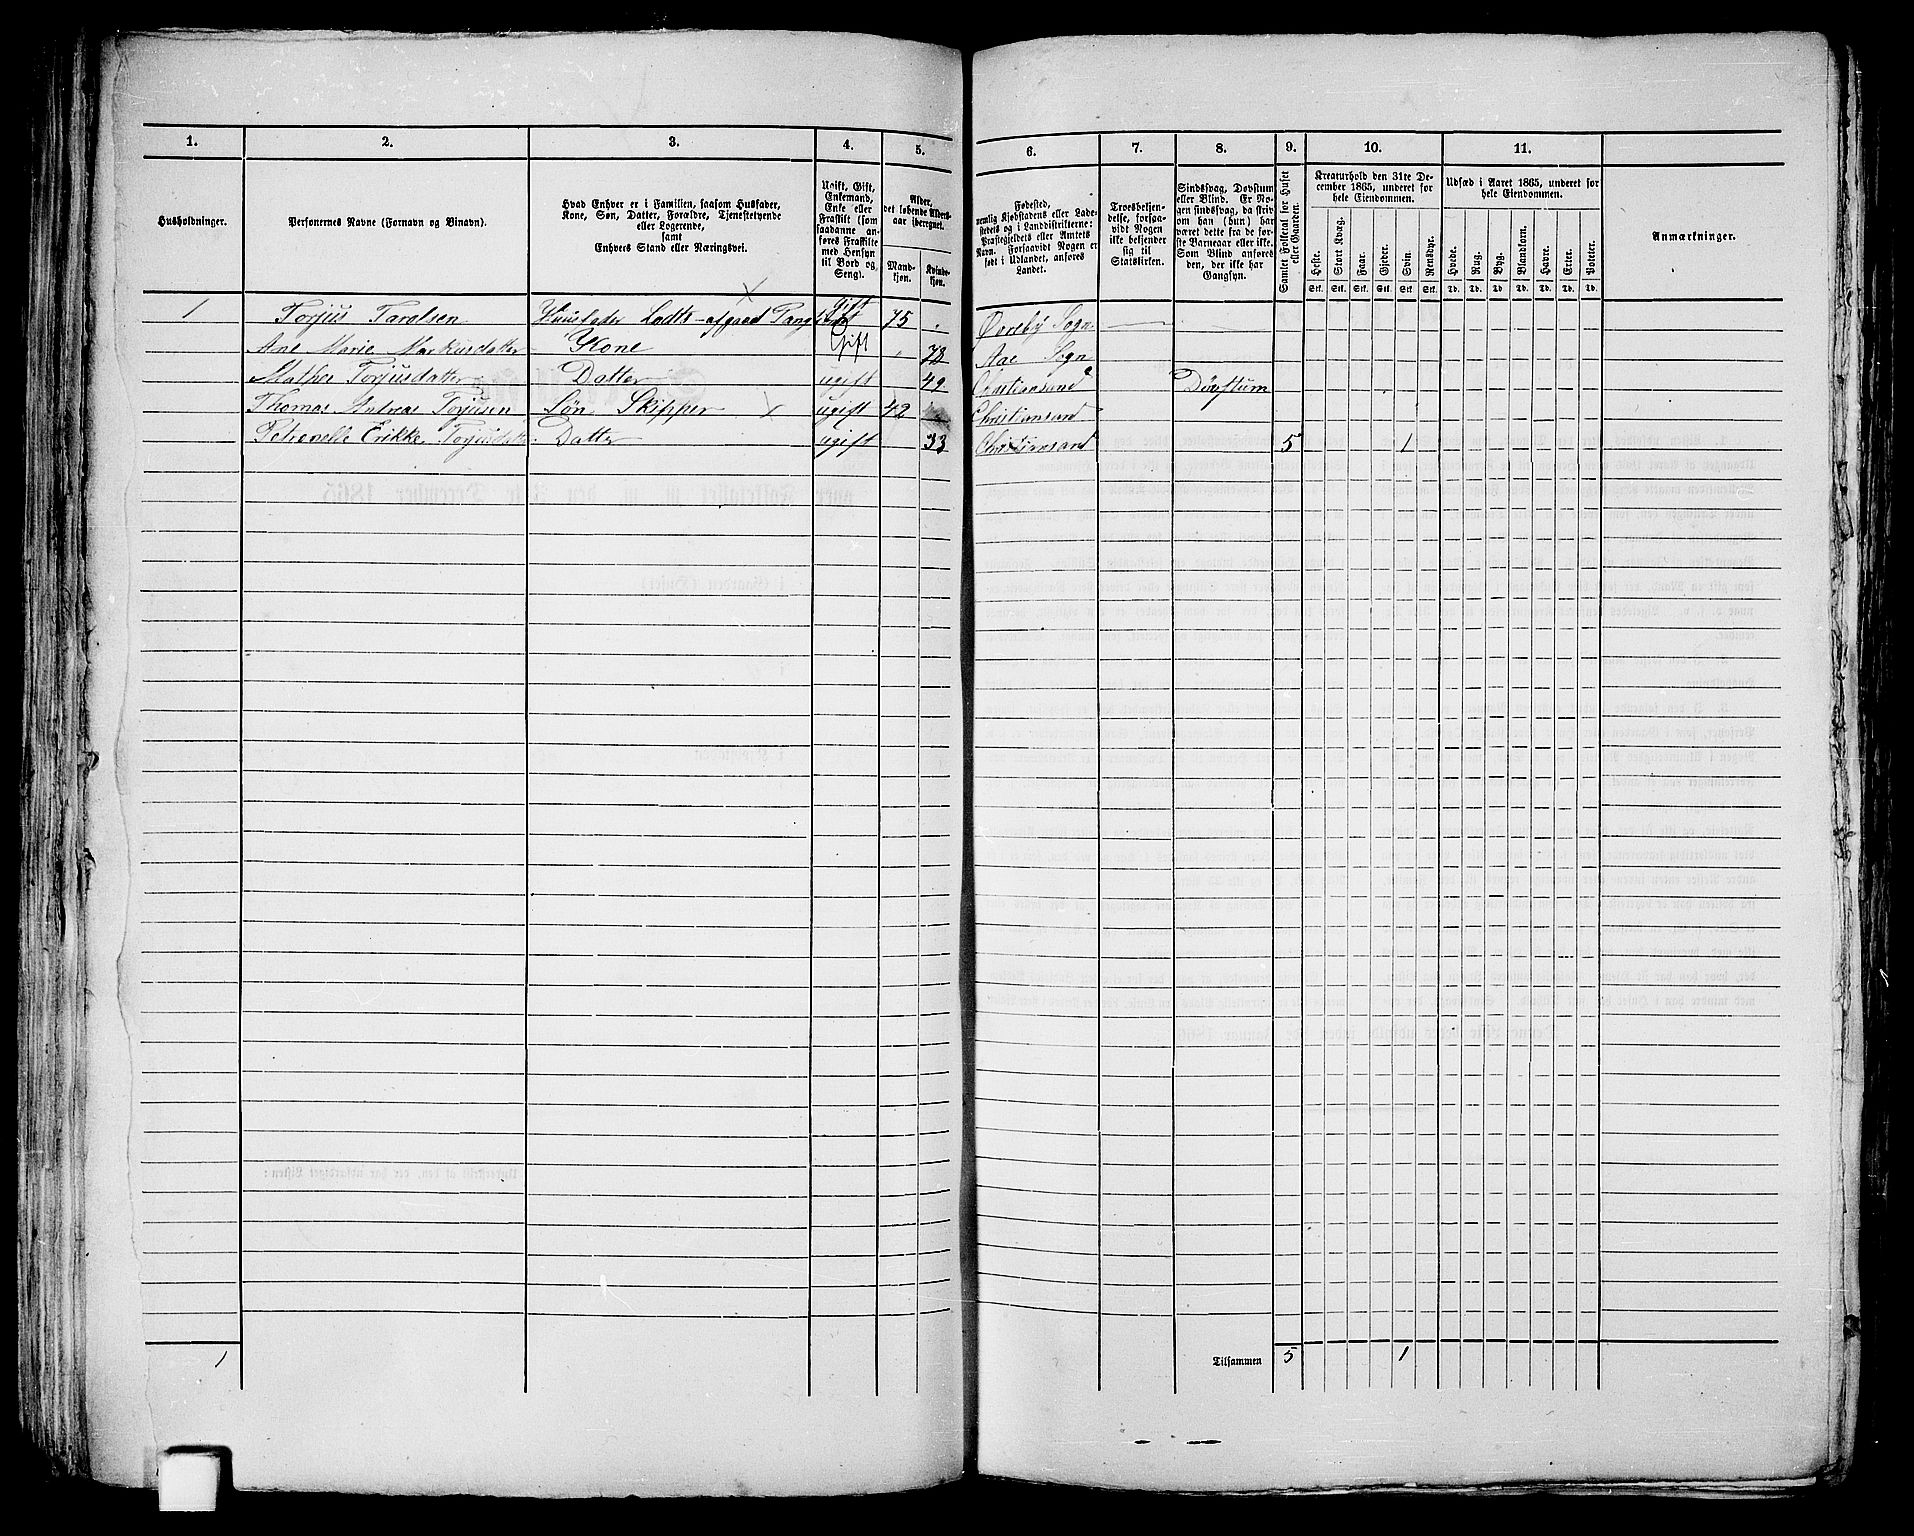 1. 2. 3. 4. 5. 6. 7. 8. 9. 10. 11.
Husholdninger.
Personernes Navne (Fornavn og Binavn).
Hvad Enhver er i Familien, saasom Husfader,
Kone, Søn, Datter, Forældre, Tjenestetyende
eller Logerende,
samt
Enhvers Stand eller Næringsvei.
Ugift, Gift,
Enkemand,
Enke eller
Fraskilt (som
saadanne an-
føres Fraskilte
med Hensyn
til Bord og
Seng).
Alder,
det løbende Alders-
aar iberegnet.
Mand-
kjøn.
Kvinde-
kjøn.
Fødested,
nemlig Kjøbstadens eller Lade-
stedets og i Landdistrikterne:
Præstegjeldets eller Amtets
Navn. Forsaavidt Nogen er
født i Udlandet, anføres
Landet.
Troesbekjen-
delse, forsaa-
vidt Nogen
ikke bekjender
sig til
Statskirken.
Sindssvag, Døvstum
eller Blind. Er No-
gen sindssvag, da skriv
om han (hun) har
været dette fra de før-
ste Barneaar eller ikke.
Som Blind anføres
den, der ikke har
Gangsyn.
Samlet Folketal for Huset
eller Gaarden.
Kreaturhold den 31te De-
cember 1865, underet for
hele Eiendommen.
Heste. Stort Kvæg. Faar. Gjeder. Svin. Rensdyr.
Stk. Stk. Stk. Stk. Stk. Stk.
Udsæd i Aaret 1865, underet for
hele Eiendommen.
Hvede. Rug. Byg. Blandkorn. Havre. Erter. Poteter.
Td. Td. Td. Td. Td. Td. Td.
Anmærkninger.
1 Torjus Tarolsen Huusfader Lodts-afgaaet Gift 75 Øvrebø Sogn
Ane Marie Markusdatter Kone Gift 78 Aae Sogn
Torjusdatter Datter ugift 49 Christiansand Døvstum
Thomas Andreas Torjusen Søn Skipper ugift 42 Christiansand
Petronelle Erikke Torjusdatter Datter ugift 33 Christiansand 5 1
1 Tilsammen 5 1